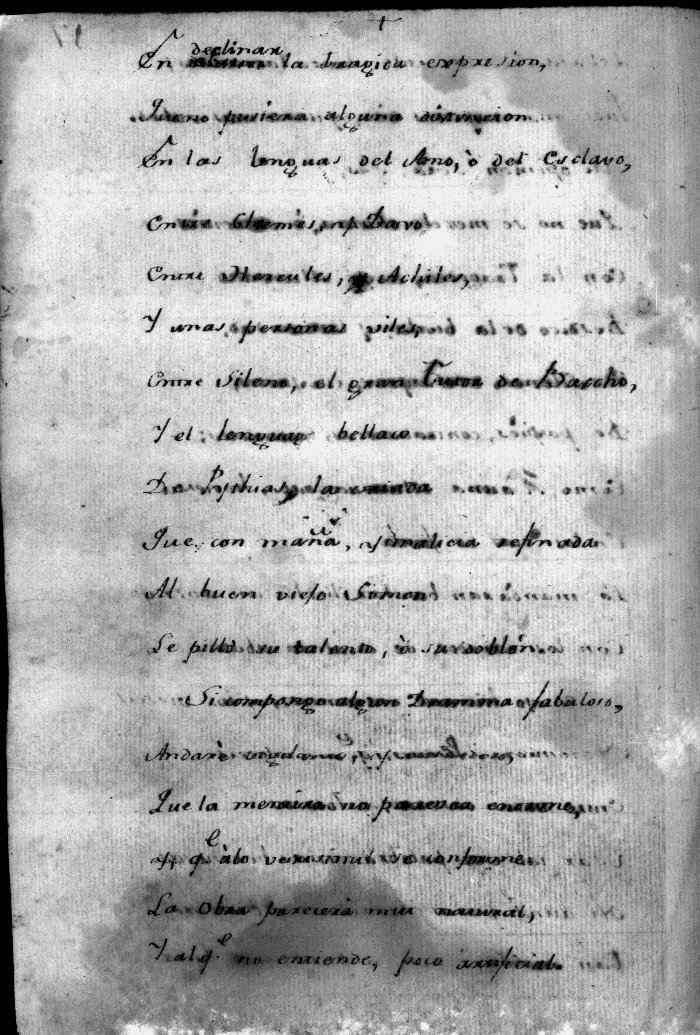 declinar
En la tragica expresion,
Que no pusiera alguna distincion
En las lenguas del Amo, ò del Esclavo,
Entre Chremes, y Davo,
Entre Hercules, y Achiles,
Y unas personas viles,
Entre Sileno, el gran Tutor de Baccho,
Y el lenguage bellaco
De Pythias, la criada
Que con maña, y malicia refinada
Al buen viejo Simon
Le pilló su talento, ò su doblón
Si compongo algun Dramma fabuloso,
Andaré vigilante, y
Que la mentira no parezca enorme,
y qe. àlo verosimil se conforme
La Obra parecerà mui natural,
Y al qe. no entiende, poco artificial.